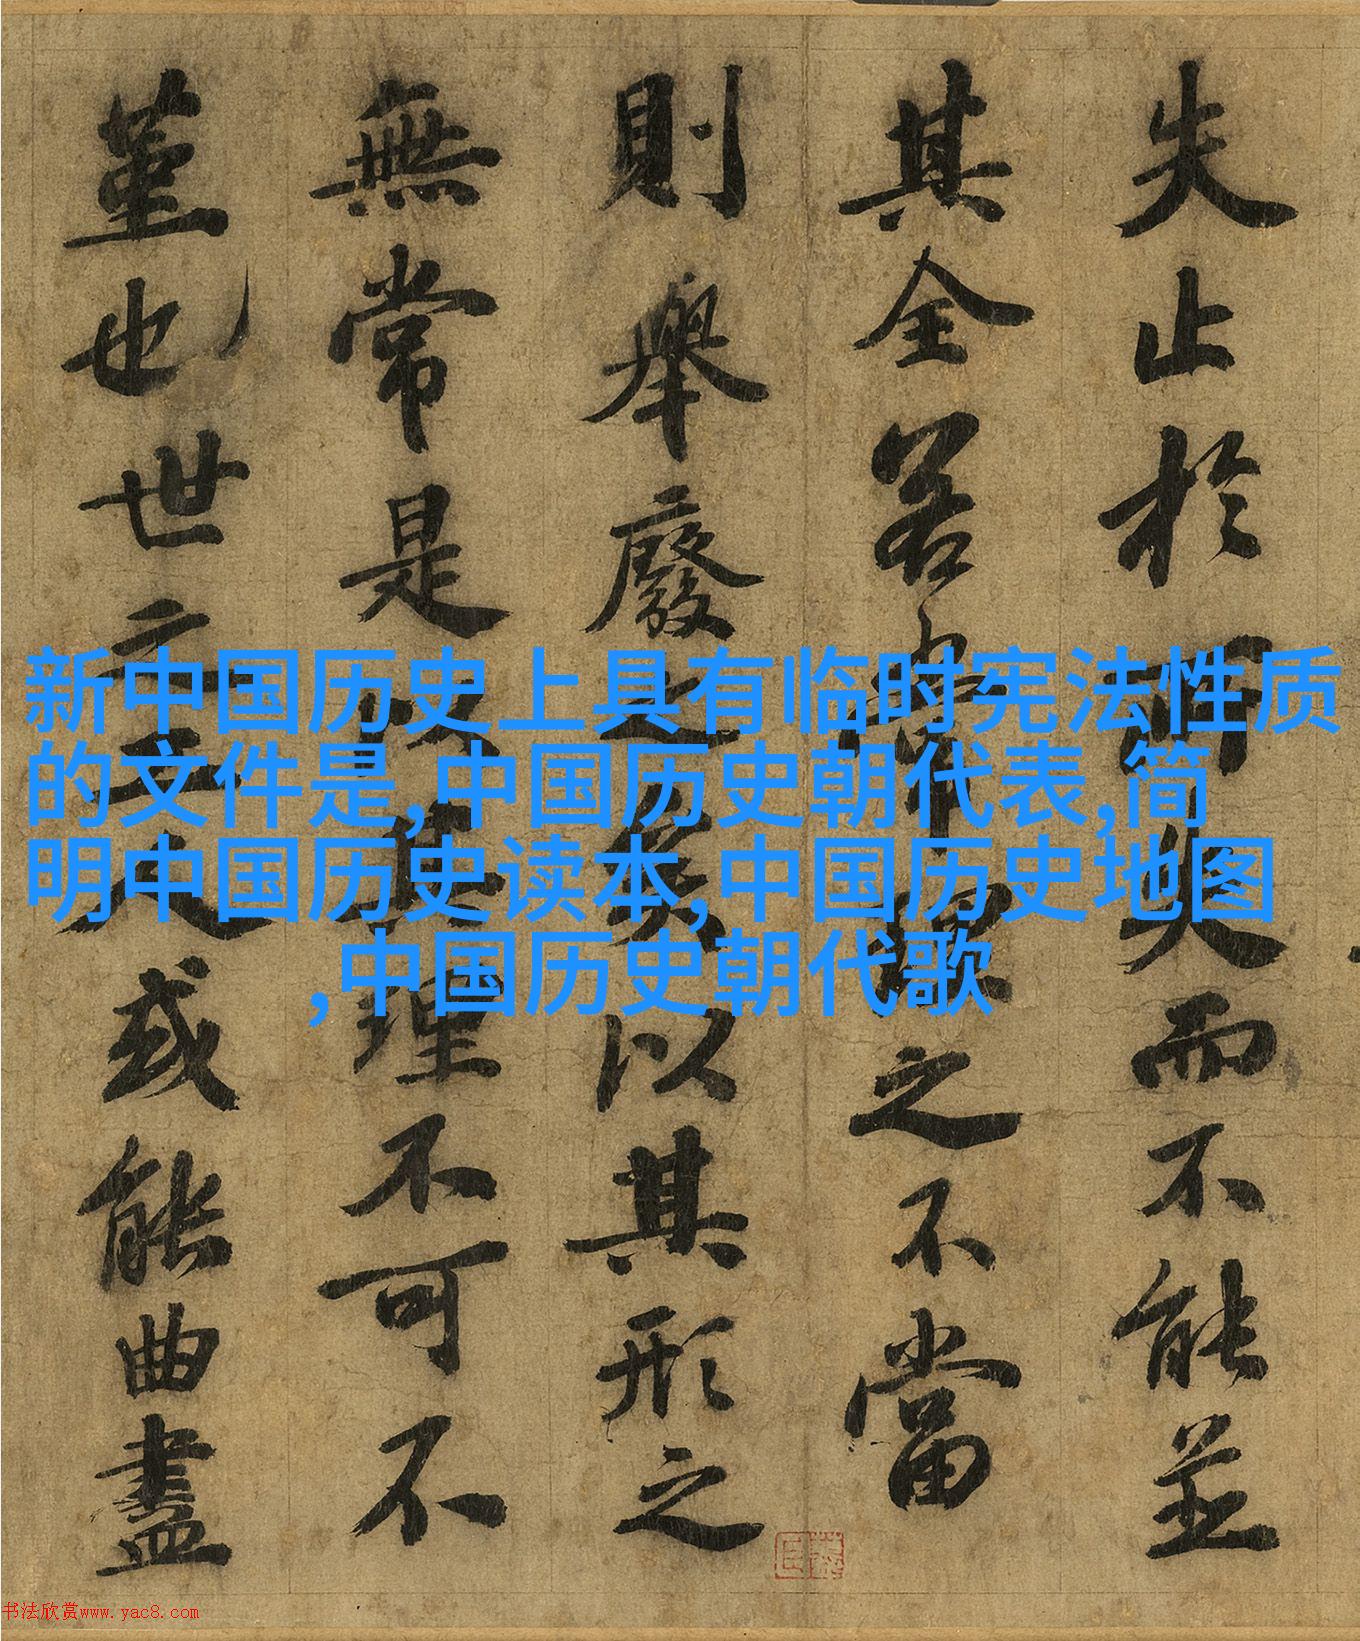 失止於所失而不能並
其全若常理之不當
則舉廢之矣以其形之
無常是以其理不可不
堇也世之工人或能曲盡
新中国历史上具有临时宪法性质
的文件是,中国历史朝代表,简
明中国历史读本,中国历史地图
,中国历史朝代歌
书法欣赏www.yac8.com